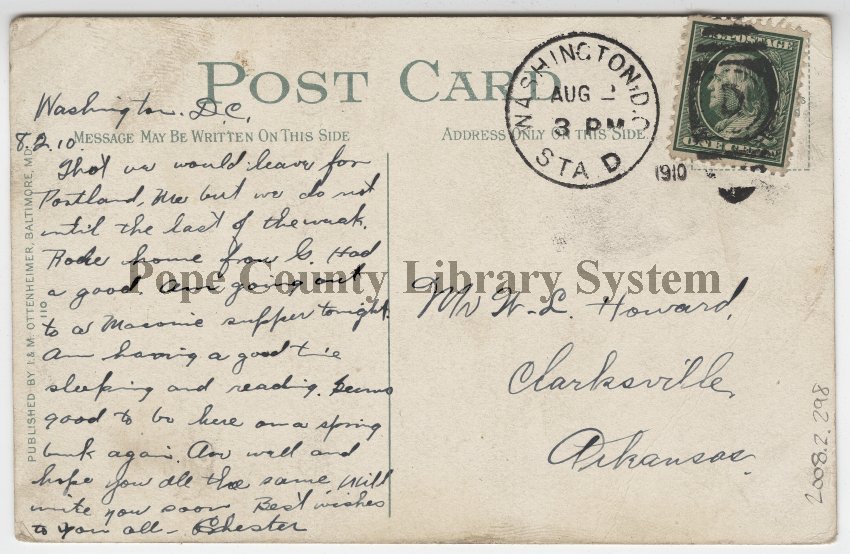 POST CARD
WASHINGTON, D.C.
AUG 2
3 PM
STA. D
1910
POSTAGE
D
ONE CENT
MESSAGE MAY BE WRITTEN ON THIS SIDE
ADDRESS ONLY ON THIS SIDE
Washington D.C.
8.2.10.
Thot we would leave for
Portland, Me but we do not
until the last of the week.
Rode home from G. Had
a good. Am going out
to a Masonic supper tonight.
Am having a good time
sleeping and reading. Seems
good to be here on a spring
bunk again. Am well and
hope you all the same. Will
write you soon. Best wishes
to you all - Chester
Mr W. L. Howard,
Clarksville,
Arkansas.
Pope County Library System
PUBLISHED BY I. & M. OTTENHEIMER, BALTIMORE, MD.
110
2008.2.298